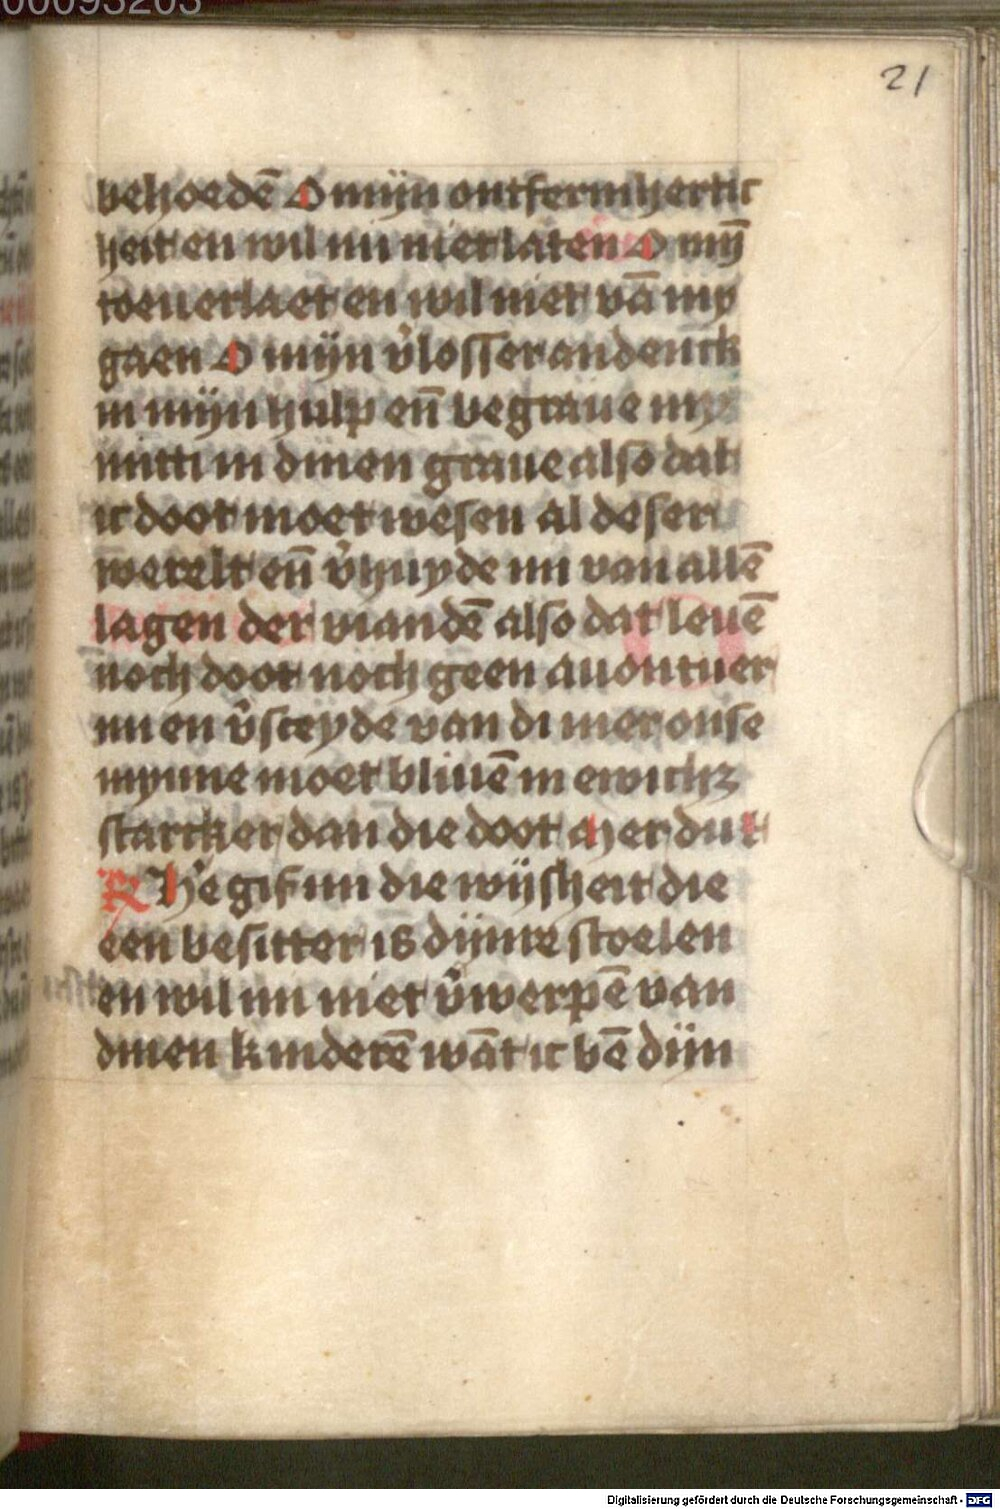 00093203
21
behoedē O mijn ontfermhertic
heit en wil mi niet laten O mij̄
toeuerlaet en wil niet vā my
gaen O mijn v̉losser andenck
in mijn hulp en̄ begraue my
mitti in dinen graue also dat
ic doot moet wesen al deser
werelt en̄ v̉huyde mi van allē
lagen der viandē also dat leuē
noch doot noch geen auontuer
mi en v̉sceyde van di mer onse
mynne moet bliuē in ewichz
starcker dan die doot Mer du
R He gif mi die wijsheit die
een besitter is dijnre stoelen
en wil mi niet v̉werpē van
dinen kinderē wāt ic bē dijn
Digitalisierung gefördert durch die Deutsche Forschungsgemeinschaft - DFG